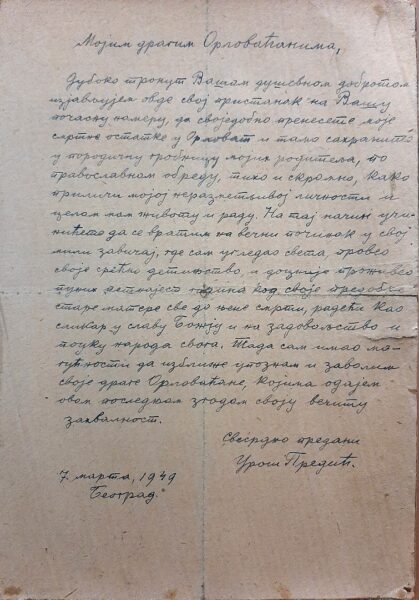 Мојим драгим Орловаћанима,
Дубоко тронут Вашом душевном добротом
изјављујем овде свој пристанак на Вашу
почасну намеру, да своједобно пренесете моје
смртне остатке у Орловат и тамо сахраните
у породичну гробницу мојих родитеља, по
православном обреду, тихо и скромно, како
приличи мојој неразметљивој личности и
целом мом животу и раду. На тај начин учи-
нићете да се вратим на вечни починак у свој
мили завичај, где сам угледао света, провео
своје срећно детињство, и доцније проживео
пуних година код своје предобре
старе матере све до њене смрти, радећи као
сликар у славу Божју и на задовољство и
поуку народа свога. Тада сам имао мо-
гућности да изближе упознам и заволим
своје драге Орловаћане, којима одајем
овом последњом згодом своју вечиту
захвалност.
Свесрдно предани
Урош Предић.
7. марта, 1949
Београд.